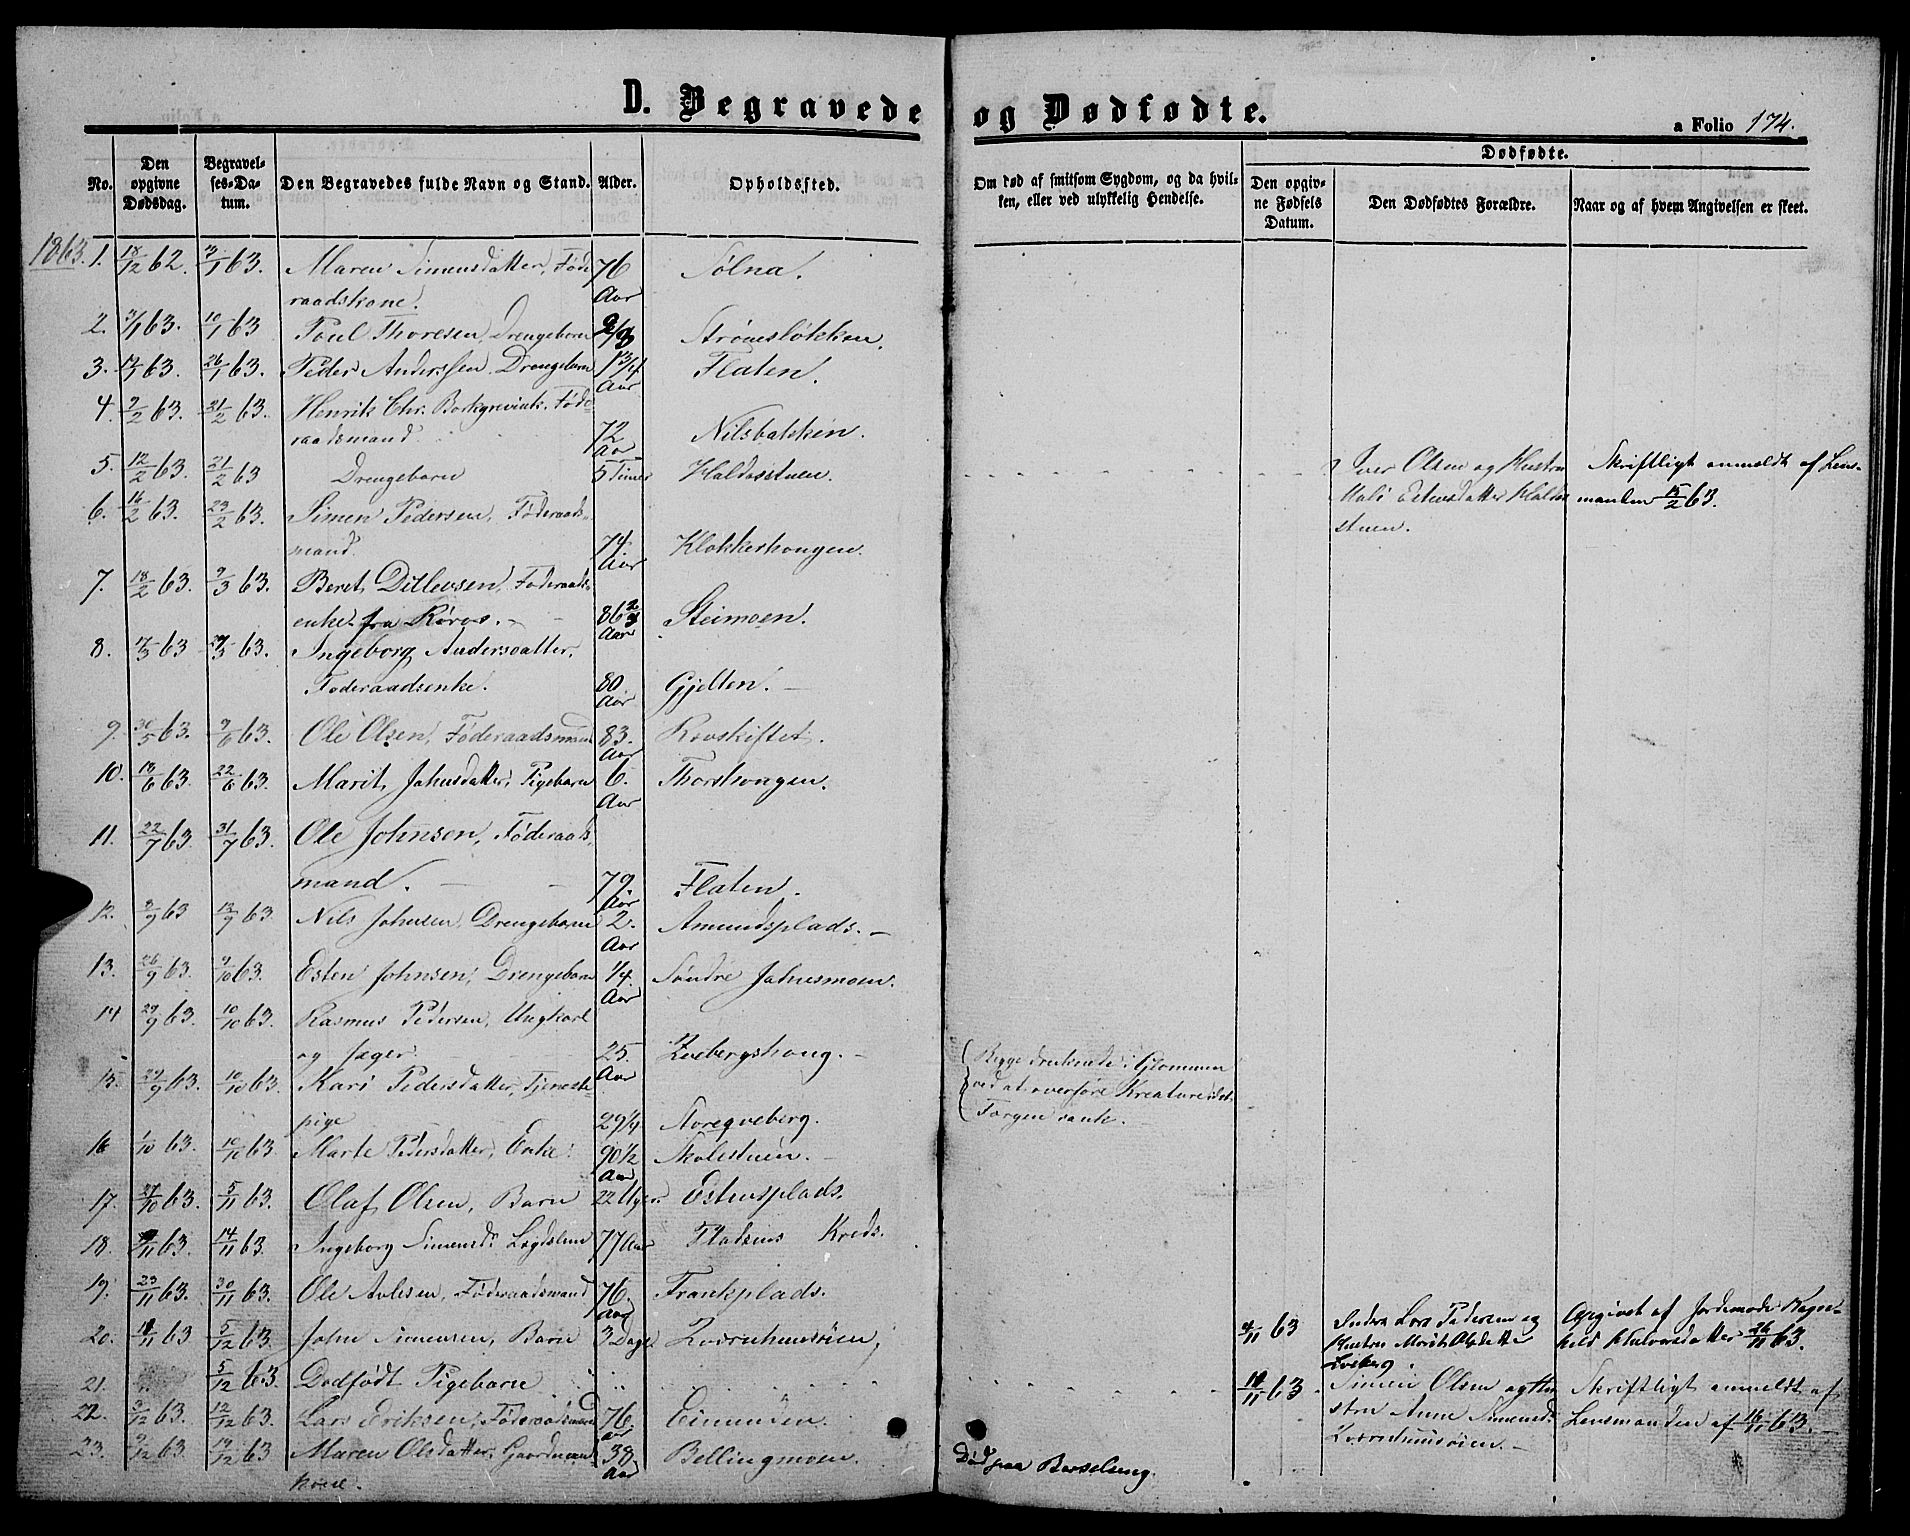 D. Begravede og Dødfødte.
a Folio 174.
No.
Den opgivne Dødsdag.
Begravelses-Datum.
Den Begravedes fulde Navn og Stand.
Alder.
Opholdssted.
Om død af smitsom Sygdom, og da hvilken, eller ved ulykkelig Hendelse.
Dødfødte.
Den opgivne Fødsels Datum.
Den Dødfødtes Forældre.
Naar og af hvem Angivelsen er skeet.
1863. 1. 18/12 62. 3/1 63. Maren Simensdatter, Føderaadskone. 76 Aar Tølna.
2. 3/1 63. 10/1 63 Poul Thoresen, Drengebarn Strømsløkken.
3. 63. 26/1 63. Peder Anderssen, Drengebarn 1 3/4 Aar Flaten.
4. 9/2 63. 21/2 63. Henrik Chr. Borkgrevink. Føderaadsmand 72 Aar Nilsbakken.
5. 12/2 63. 21/2 63 Drengebarn 5 Timer Haldosstuen. Iver Olsen og Hustru Skriftligt anmeldt af Lens-
Mali Estensdatter Haldos manden 15/2 63.
stuen.
6. 14/2 63. 23/2 63. Simen Pedersen, Føderaadsmand. 74. Aar Klokkerhougen.
7. 18/2 63. 9/3 63. Beret Ditlevsen, Føderaadsenke fra Røros. 86 2/3 Aar Steimoen.
8. 17/3 63 63. Ingeborg Andersdatter, Føderaadsenke. 80 Aar Gjelten.
9. 30/5 63. 9/6 63. Ole Olsen, Føderaadsmand 83. Aar Kovskiftet.
10. 13/6 63. 22/6 63. Marit Johnsdatter, Pigebarn 6. Aar Thorshougen.
11. 22/7 63. 31/7 63. Ole Johnsen, Føderaadsmand. 79. Aar Flaten.
12. 3/9 63 13/9 63. Nils Johnsen, Drengebarn 2. Aar Amundsplads.
13. 26/9 63. 9/10 63. Esten Johnsen, Drengebarn 1/4. Aar Søndre Johnsmoen.
14 29/9 63. 10/10 63. Rasmus Pedersen, Ungkarl og Jæger. 25. Aar Kvebergshoug. Begge druknede i Glommen
15. 29/9 63. 10/10 63. Kari Pedersdatter, Tjenestepige 29 1/4 Storeqveberg. ved at overføre Kreature idet
Færgen sank.
16 1/10 63. 10/10 63. Marte Pedersdatter, Enke. 90 1/2 Aar Skolestuen.
17. 27/10 63. 5/11 63. Olaf Olsen, Barn 22 Uger. Estensplads.
18. 63. 14/11 63. Ingeborg Simensd. Lægdslem 77 Aar Pladsens Kreds.
19. 23/11 63. 30/11 63. Ole Avlesen, Føderaadsmand 76. Aar Frankplads.
20. 63 5/12 63. John Simensen, Barn 3 Dage Kværnhuusøien,
4/11 63 Lars Pedersen og Angivet af Jordemoder Ragn-
Hustru Marit Olsdatter hild Halvorsdatter 26/11 63.
21. 5/12 63 Dødfødt Pigebarn 11/11 63 Simen Olsen og Hu- Skriftligt anmeldt af
stru Anne Simensd. Lensmanden af 16/11 63.
Kværnhuusøien.
22. 3/12 63. 12/12 63. Lars Eriksen, Føderaadsmand 76. Aar Einunden.
23. 9/12 63. 19/12 63 Maren Olsdatter, Gaardmandskone. 38 Aar Bellingmoen. Død paa Barselseng.